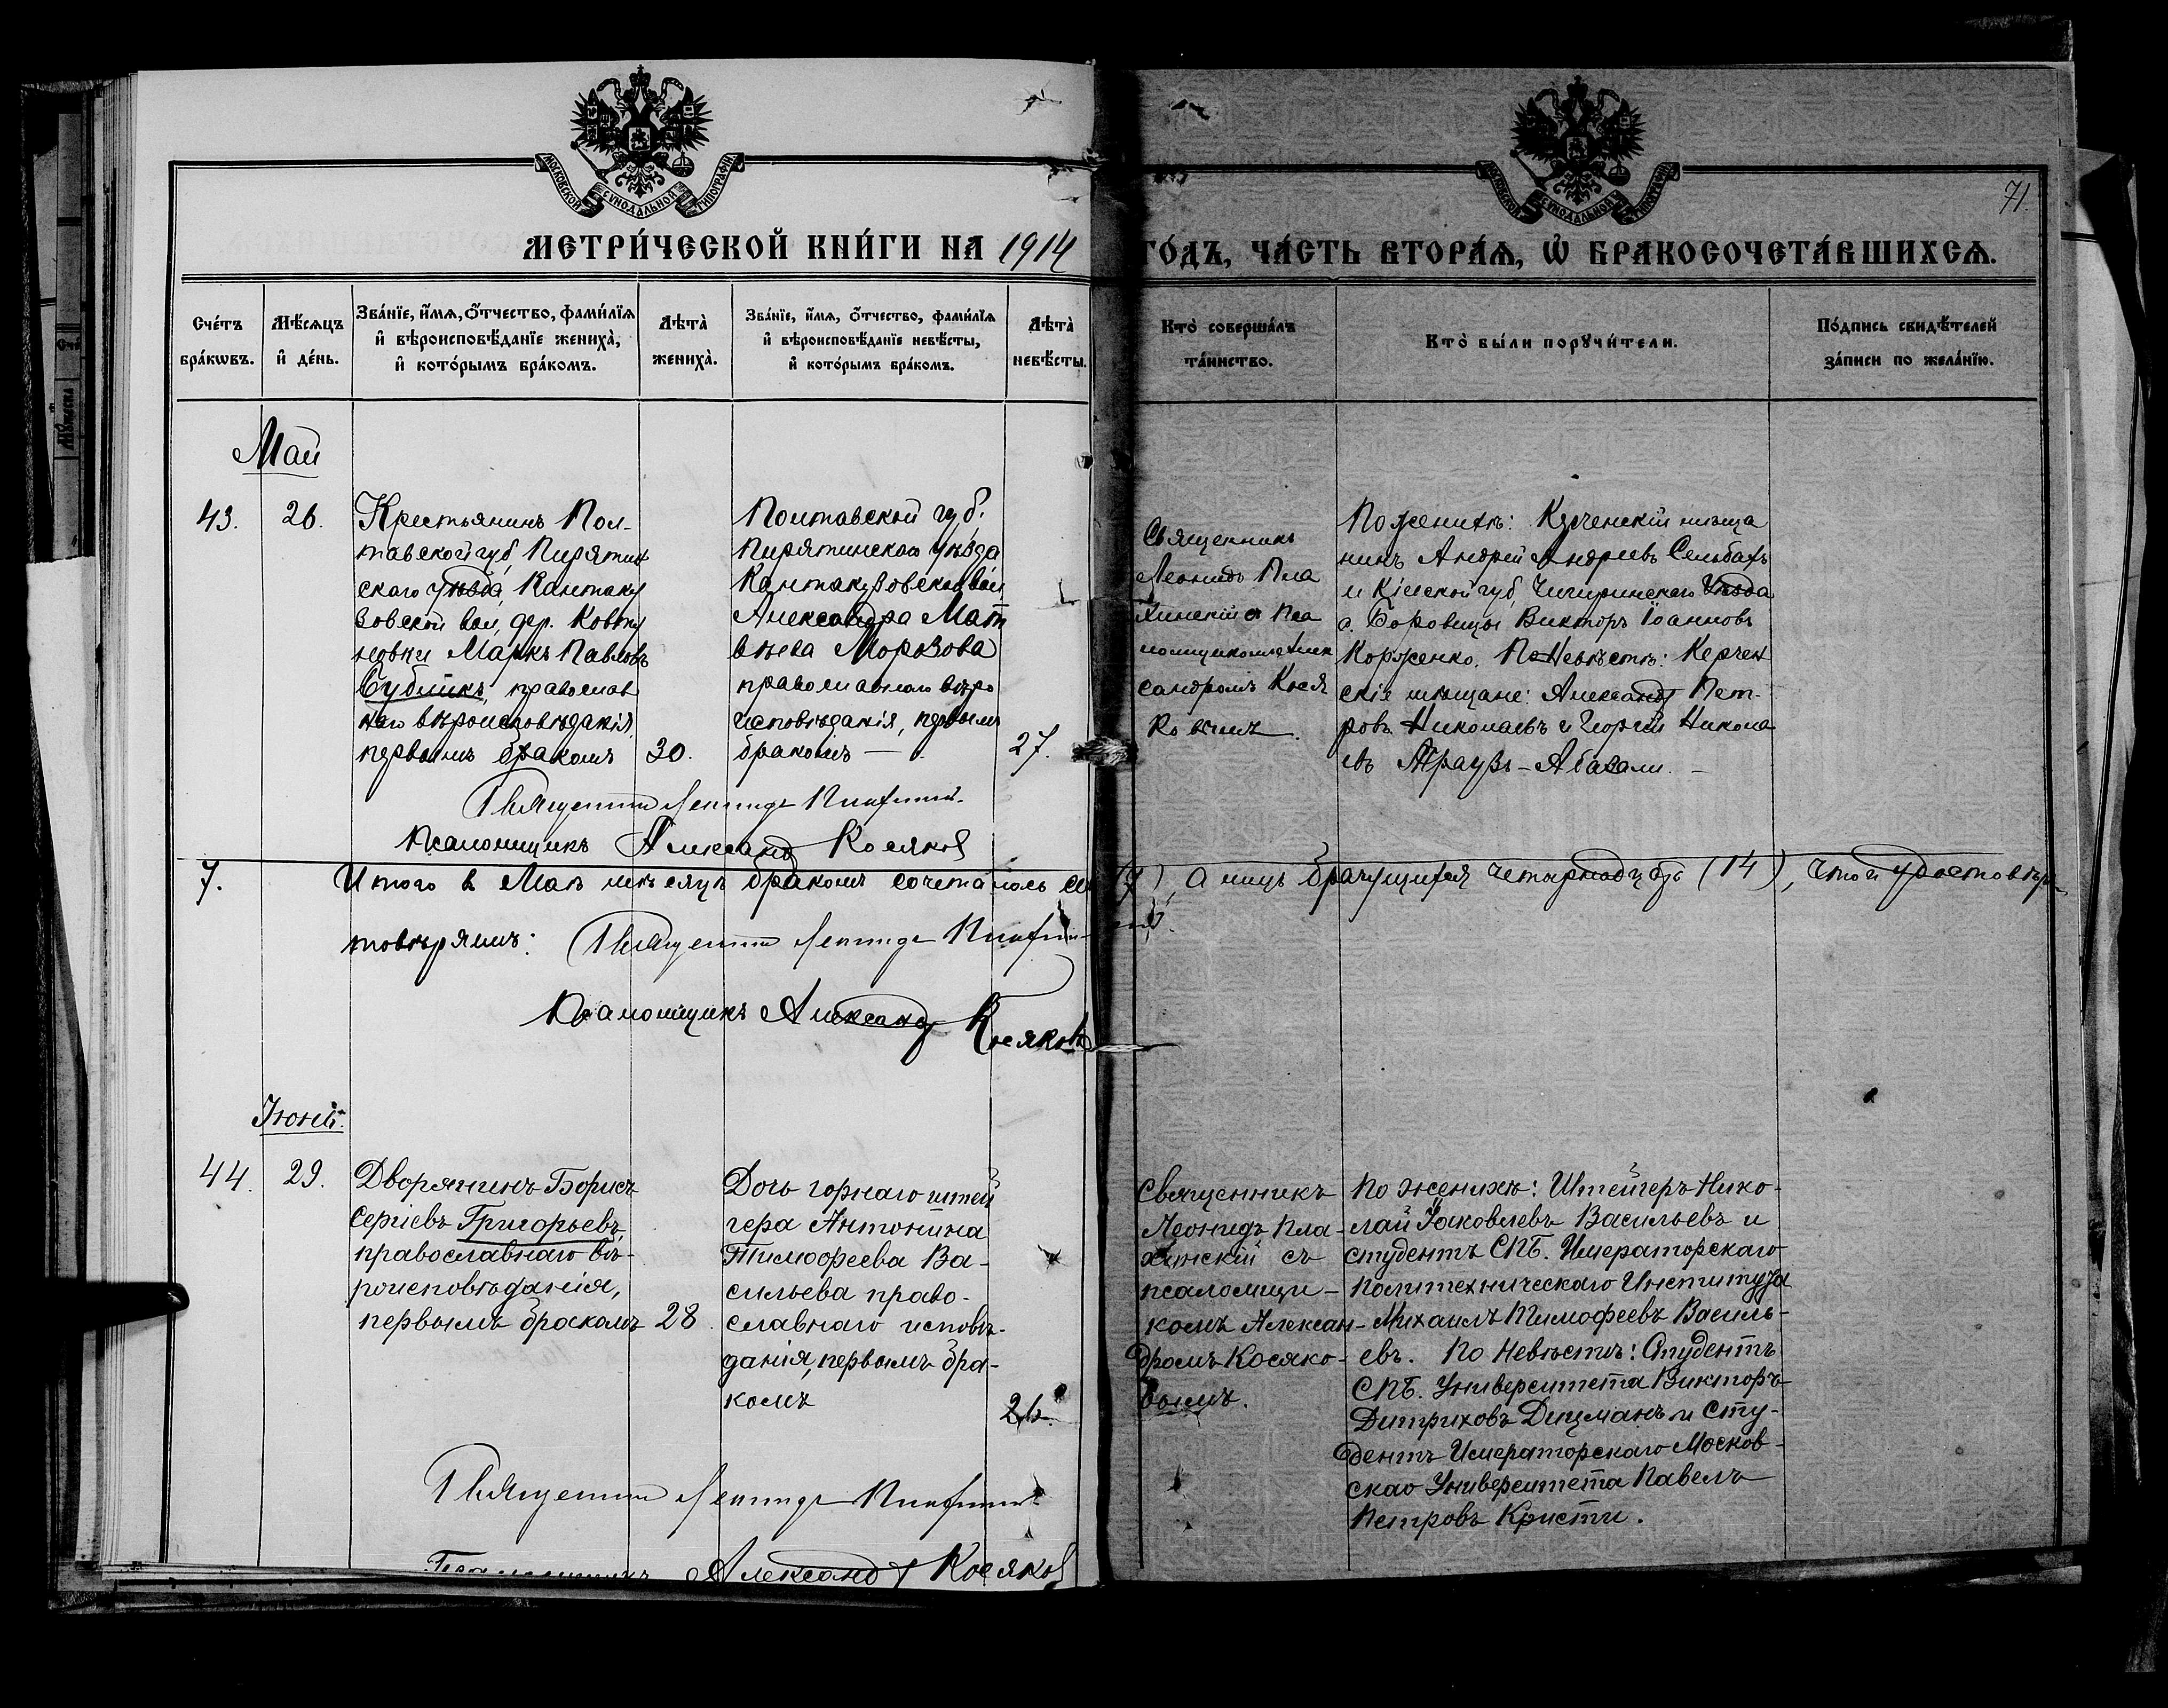 МОСКОВСКОЙ СѴНОДАЛЬНОЙ ТИПОГРАФІИ
МОСКОВСКОЙ СѴНОДАЛЬНОЙ ТИПОГРАФІИ
71.
МЕТРИ́ЧЕСКОЙ КНИ́ГИ НА 1914
ГО́ДЪ, ЧА́СТЬ ВТОРА́Ѧ, Ѡ БРАКОСОЧЕТА́ВШИХСѦ.
Сче́тъ
бра́кѡвъ.
Мѣ́сѧцъ
и҆ де́нь.
Зва́нїе, и҆́мѧ, ѻ҆́тчество, фами́лїѧ
и҆ вѣроисповѣ́данїе жениха̀,
и҆ кото́рымъ бра́комъ.
Лѣта̀
жениха̀.
Зва́нїе, и҆́мѧ, ѻ҆́тчество, фами́лїѧ
и҆ вѣроисповѣ́данїе невѣ́сты,
и҆ кото́рымъ бра́комъ.
Лѣта̀
невѣ́сты.
Кто̀ соверша́лъ
та́инство.
Кто̀ бы́ли порꙋчи́тели.
По́дпись свидѣ́телей
за́писи по жела́нїю.
Май
43.
26.
Крестьянинъ Пол-
тавской губ, Пирятин
скаго уѣзда, Кантаку
зовской вол, дер. Ковту
новки Маркъ Павловъ
Бублик, православ
наго вѣроисповѣданія,
первымъ бракомъ
30.
Полтавской губ.
Пирятинскаго уѣзда
Кантакузовской вол
Александра Мат
вѣева Морозова
православнаго вѣро
исповѣданія, первым
бракомъ —
27.
Священникъ
Леонидъ Пла
хинскій съ Пса
ломщикомъ Алек
сандромъ Кося
ковымъ.
По женихѣ: Керченскій мѣща
нинъ Андрей Андреевъ Сельбахъ
и Кіевской губ, Чигиринскаго Уѣзда
с. Боровицы Викторъ Іоанновъ
Корженко. По Невѣстѣ: Керчен
скіе мѣщане: Александр Пет-
ровъ Николаевъ и Георгій Никола
евъ
Священникъ Леонидъ Плахинскій.
Псаломщикъ Александръ Косяковъ
7.
Итого в Маѣ мѣсяцѣ бракомъ сочеталось (7), а лицъ брачущихся четырнадцать (14), Что и удостовѣр
товѣряемъ: Священникъ Леонидъ Плахинскій.
Псаломщикъ Александръ Косяковъ
Іюнь.
44.
29.
Дворянинъ Борисъ
Сергіевъ Григорьевъ,
православнаго вѣ-
роисповѣданія,
первымъ бракомъ
28.
Дочь горнаго штей
гера Антонина
Тимофеева Ва-
сильева право-
славнаго исповѣ-
данія, первымъ бра-
комъ
26.
Священникъ
Леонидъ Пла-
хинскій съ
псаломщи-
комъ Алексан-
дромъ Косяко-
вымъ.
По женихѣ: Штейгеръ Нико-
лай Яковлевъ Васильевъ и
студентъ СПБ. Императорскаго
Политехническаго Института
Михаилъ Тимофеевъ Василь-
евъ. По Невѣстѣ: Студентъ
СПБ. Университета Викторъ
Дитриховъ Дицманъ и Сту-
дентъ Императорскаго Москов-
скао Университета Павелъ
Петровъ Кристи.
Священникъ Леонидъ Плахинскій
Псаломщикъ Александръ Косяковъ